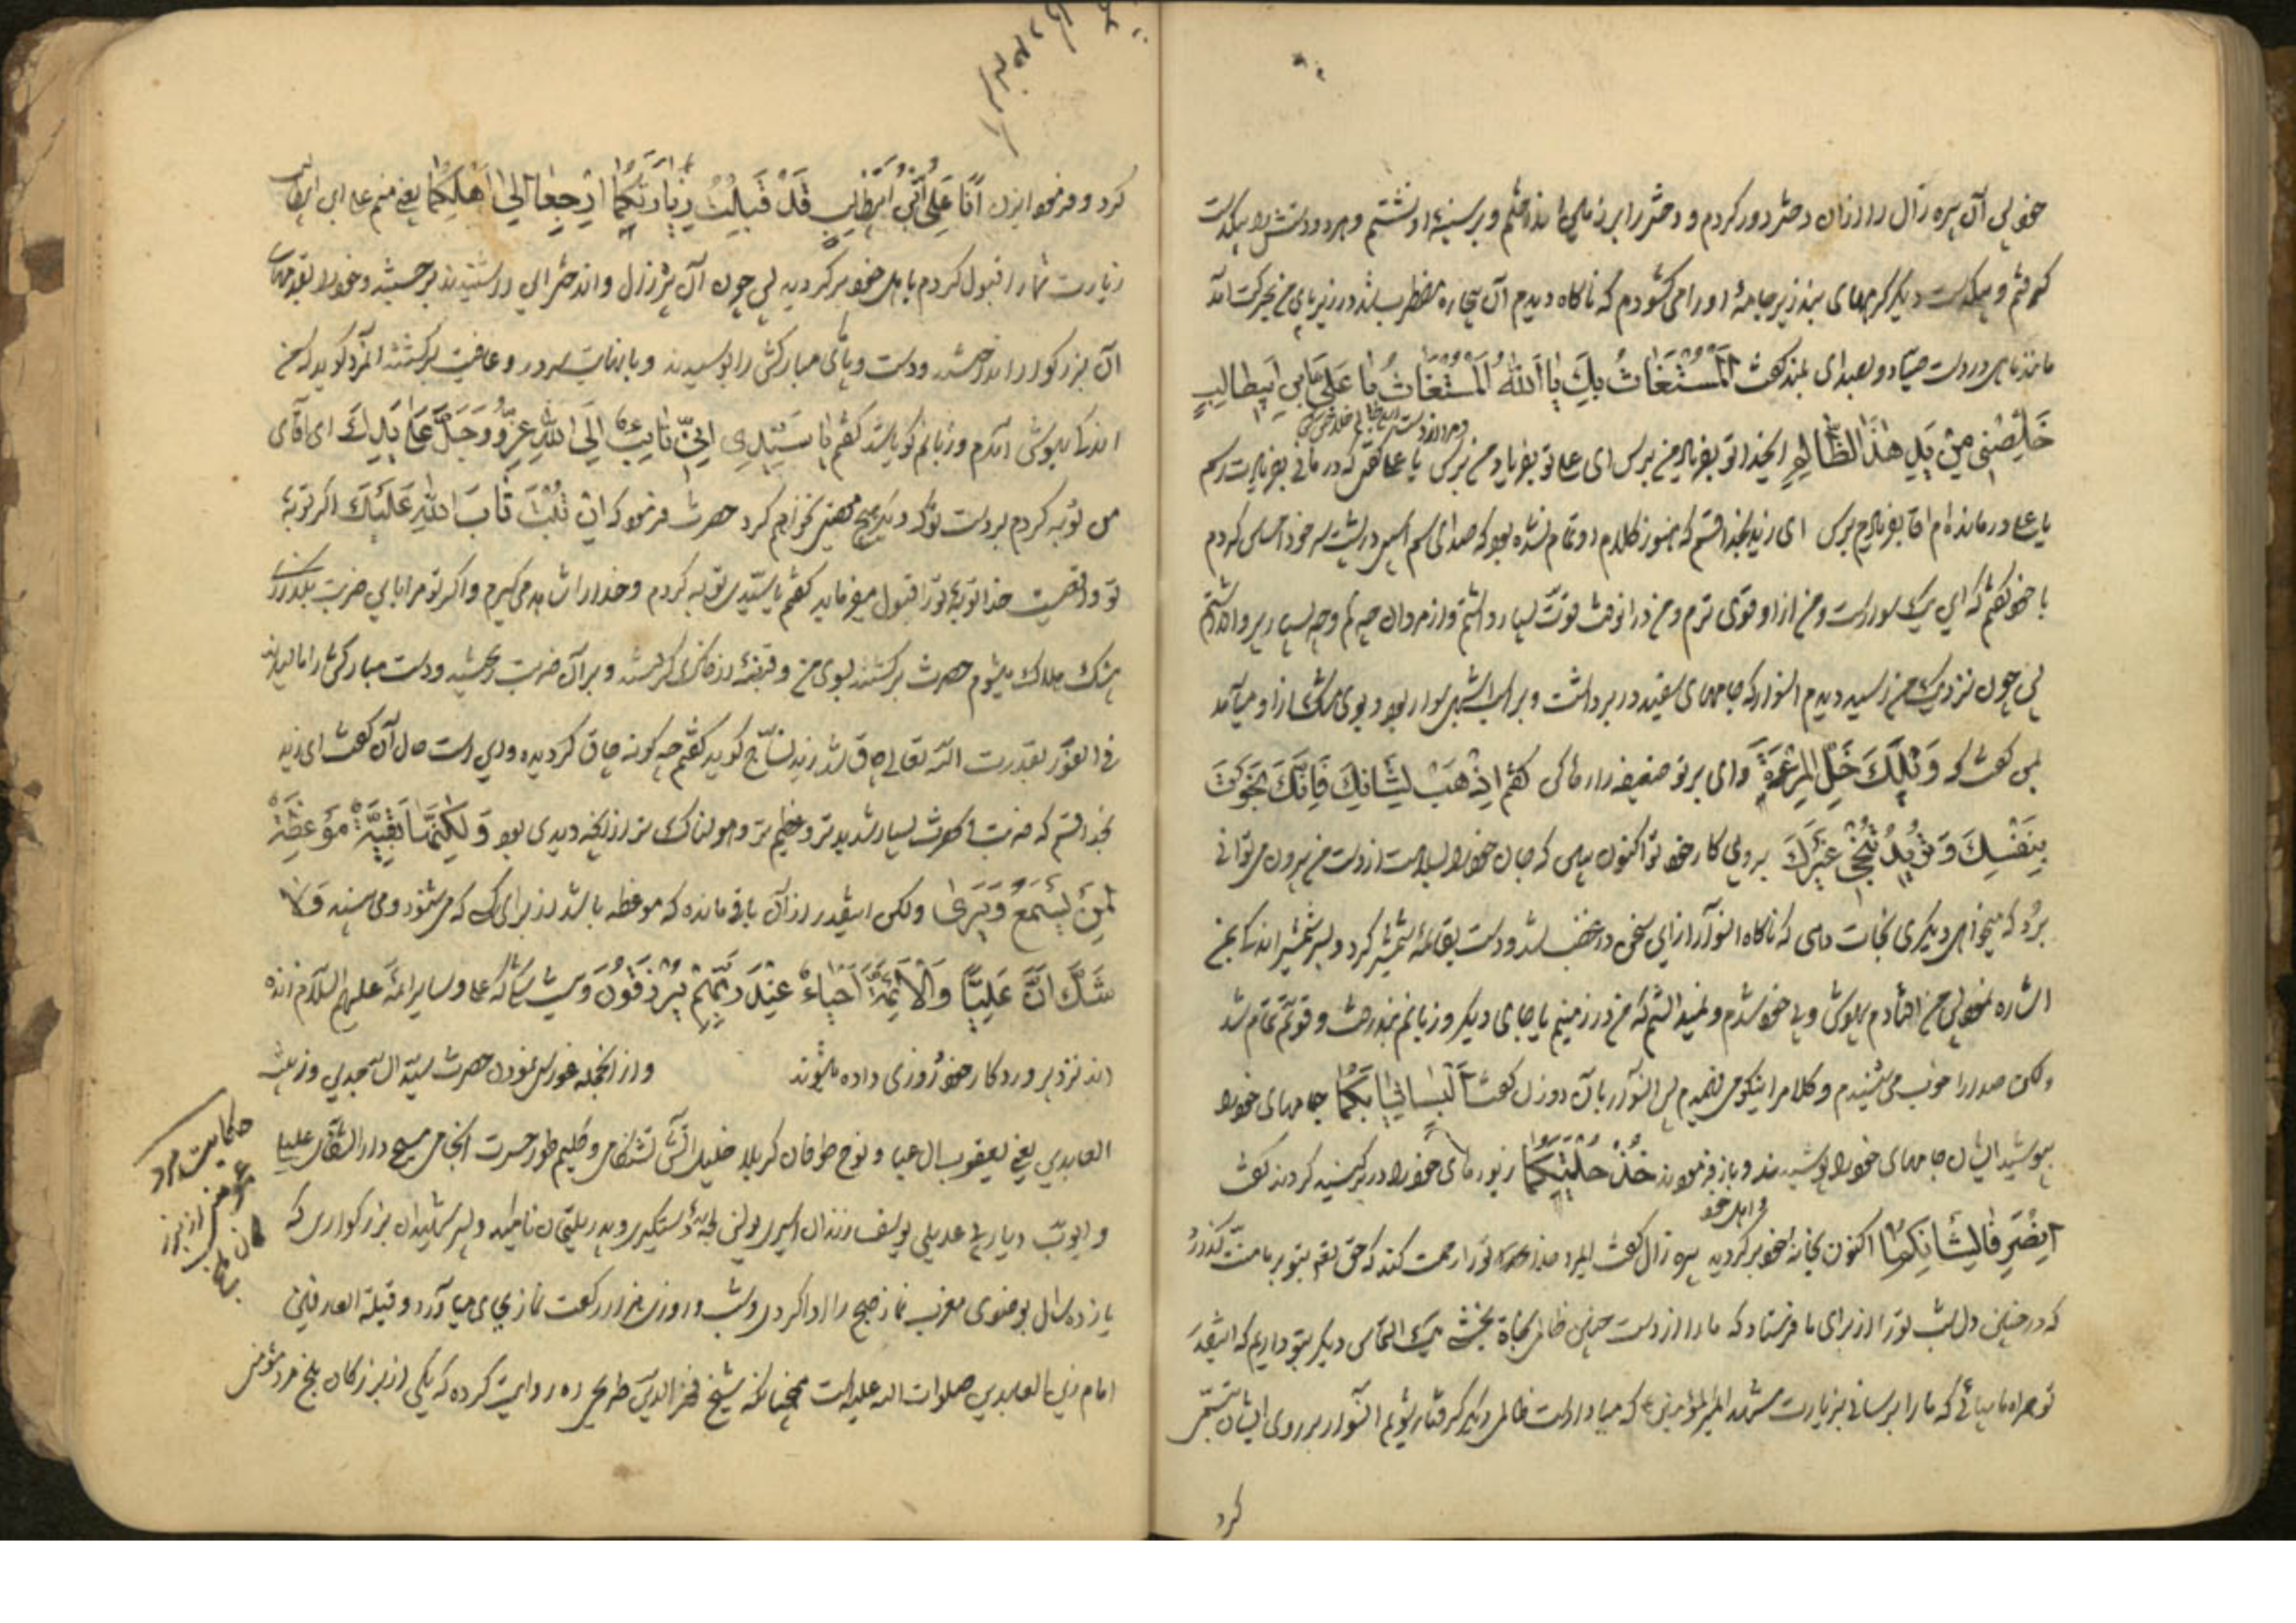 خود پس آن پیره زال را از آن دختر دور کردم و دختر را بر زمین انداختم و بر سینه او نشستم و هر دو دستش را بیکدست
گرفتم و بیکدست دیگر گرههای بند زیر جامهٔ او را می گشودم که ناگاه دیدم آن بیچاره مضطرب شد در زیر پای من بحرکت آمد
مانند ماهی در دست صیاد و بصدای بلند گفت اَلْمُسْتَغاثُ بِكَ یا اَللهُ اَلْمُسْتَغاثُ یا عَلِیَّ بْنِ اَبیطالِبٍ
خَلِّصْنی مِنْ یَدِ هٰذَا الظّالِمِ ای خدا تو بفریاد من برس ای علی تو بفریاد من برس یا علی که در مانی بفریادت رسم
یا علی درمانده ام آقا بفریادم برس ای زید بخدا قسم که هنوز کلام او تمام نشده بود که صدای سم اسبی در پشت سر خود احساس کردم
با خود گفتم که این یک سوار است و من از او قوی ترم و من در آنوقت قوت بسیار داشتم و از مردان چه کم و چه بسیار پروا نداشتم
پس چون نزدیک من رسید دیدم آنسوار که جامهای سفید در بر داشت و بر اسب اشهبی سوار بود و بوی مشک از او میآمد
بمن گفت که وَیْلَكَ خَلِّ الْمَرْئَةَ وای بر تو ضعیفه را رها کن گفتم اِذْهَبْ لِشَانِكَ فَاِنَّكَ نَجَوْتَ
بِنَفْسِكَ وَ تُریدُ تُنْجی غَیْرَكَ برو پی کار خود تو اکنون بهل که جان خود را بسلامت از دست من بیرون میتوانی
برد که میخواهی دیگری نجات دهی که ناگاه آنسوار از این سخن در غضب شد و دست بقائمهٔ شمشیر کرد و بسر شمشیر اندکی بمن
اشاره نمود پس من افتادم بیهوش و بی خود شدم و نمیدانستم که من در زمینم یا جای دیگر و زبانم بند رفت و قوتم تمام شد
ولکن صدا را خوب می شنیدم و کلام را نیکو می فهمیدم پس آنسوار بآن دو زن گفت اَلْبِسا ثِیابَكُما جامهای خود را
بپوشید ایشان جامهای خود را پوشیدند و باز فرمودند خُذا حُلِیَّكُما زیورهای خود را در بر کنید کردند گفت
اِنْصَرِفا لِشَانِكُما اکنون بخانهٔ خود برگردید پیره زال گفت ایمرد خدا تو را رحمت کند که حق بر ما منت گذارد
که در چنین دل شب تو را از برای ما فرستاد که ما را از دست چنین ظالمی نجاة بخشی یک التماس دیگر بتو داریم که اینقدر
تو همراه ما بیائی که ما را برسانی بزیارت مشهد امیرالمؤمنین که مبادا بدست ظالمی دیگر گرفتار شویم آنسوار بر روی ایشان تبسم
کرد
کرد و فرمود ایزن اَنَا عَلِیُّ بْنُ اَبیطالِبٍ قَدْ قَبِلْتُ زِیارَتَكُما اِرْجِعا اِلی اَهْلِكُما یعنی منم علی ابن ابیطالب
زیارت شما را قبول کردم باهل خود برگردید پس چون آن پیرزن و آندختر این را شنیدند برجستند و خود را بقدمهای
آن بزرگوار انداختند و دست و پای مبارکش را بوسیدند و با نهایت سرور و عافیت برگشتند آنمرد گوید که من
اندک بهوش آمدم و زبانم گویا شد گفتم یا سَیِّدی اِنّی تائِبٌ اِلَی اللهِ عَزَّ وَ جَلَّ عَلٰی یَدِكَ ای آقای
من توبه کردم بدست تو که دیگر هیچ معصیتی نخواهم کرد حضرت فرمود که اِنْ تُبْتَ تابَ اللهُ عَلَیْكَ اگر توبهٔ
تو واقعیست خدا توبهٔ تو را قبول میفرماید گفتم یا سیدی توبه کردم و خدا را شاهد می گیرم و اگر تو مرا باین ضربت بگذاری
بیشک هلاک میشوم حضرت برگشتند بسوی من و قبضهٔ از خاک گرفتند و بر آن ضربت ریختند و دست مبارکش را مالیدند
فی الفور بقدرت الله تعالی چاق شد زید نساج گوید گفتم چه گونه چاق گردیده و این است حال آن گفت ای زید
بخدا قسم که ضربت آنحضرت بسیار شدیدتر و عظیم تر و هولناک تر از آنچه دیدی بود وَ لٰكِنَّها بَقِیَّةٌ مَوْعِظَةً
لِمَنْ یَسْمَعُ وَ یَری ولکن اینقدر از آن باقی مانده که موعظه باشد از برای کسی که میشنود و می بیند وَ لا
شَكَّ اَنَّ عَلِیًّا وَ الْاَئِمَّةَ اَحْیاءٌ عِنْدَ رَبِّهِمْ یُرْزَقُونَ و بی شک که علی و سایر ائمه علیهم السلام زنده
اند نزد پروردگار خود روزی داده میشوند و از آنجمله غورسی نمودن حضرت سید الساجدین و زین
العابدین یعنی یعقوب آل عبا و نوح طوفان کربلا خلیل آتش تشنکامی و کلیم طور حسرت انجامی مسیح دار الشقاق علیا
و ایوب دیار بی عدیلی یوسف زندان اسیری یونس لجهٔ دستگیری و بدر یتیمان نامراد و پسر شهیدان بزرگواری که
یازده سال بوضوی مغرب نماز صبح را ادا کردی و شب و روزی هزار رکعت نماز بجای میآورد و قبلة العارفین
امام زین العابدین صلوات الله علیه است همچنانکه شیخ فخر الدین طریحی ره روایت کرده که یکی از بزرگان بلخ مرد مؤمنی
حکایت مرد
مؤمنی از بزر
گان بلخ